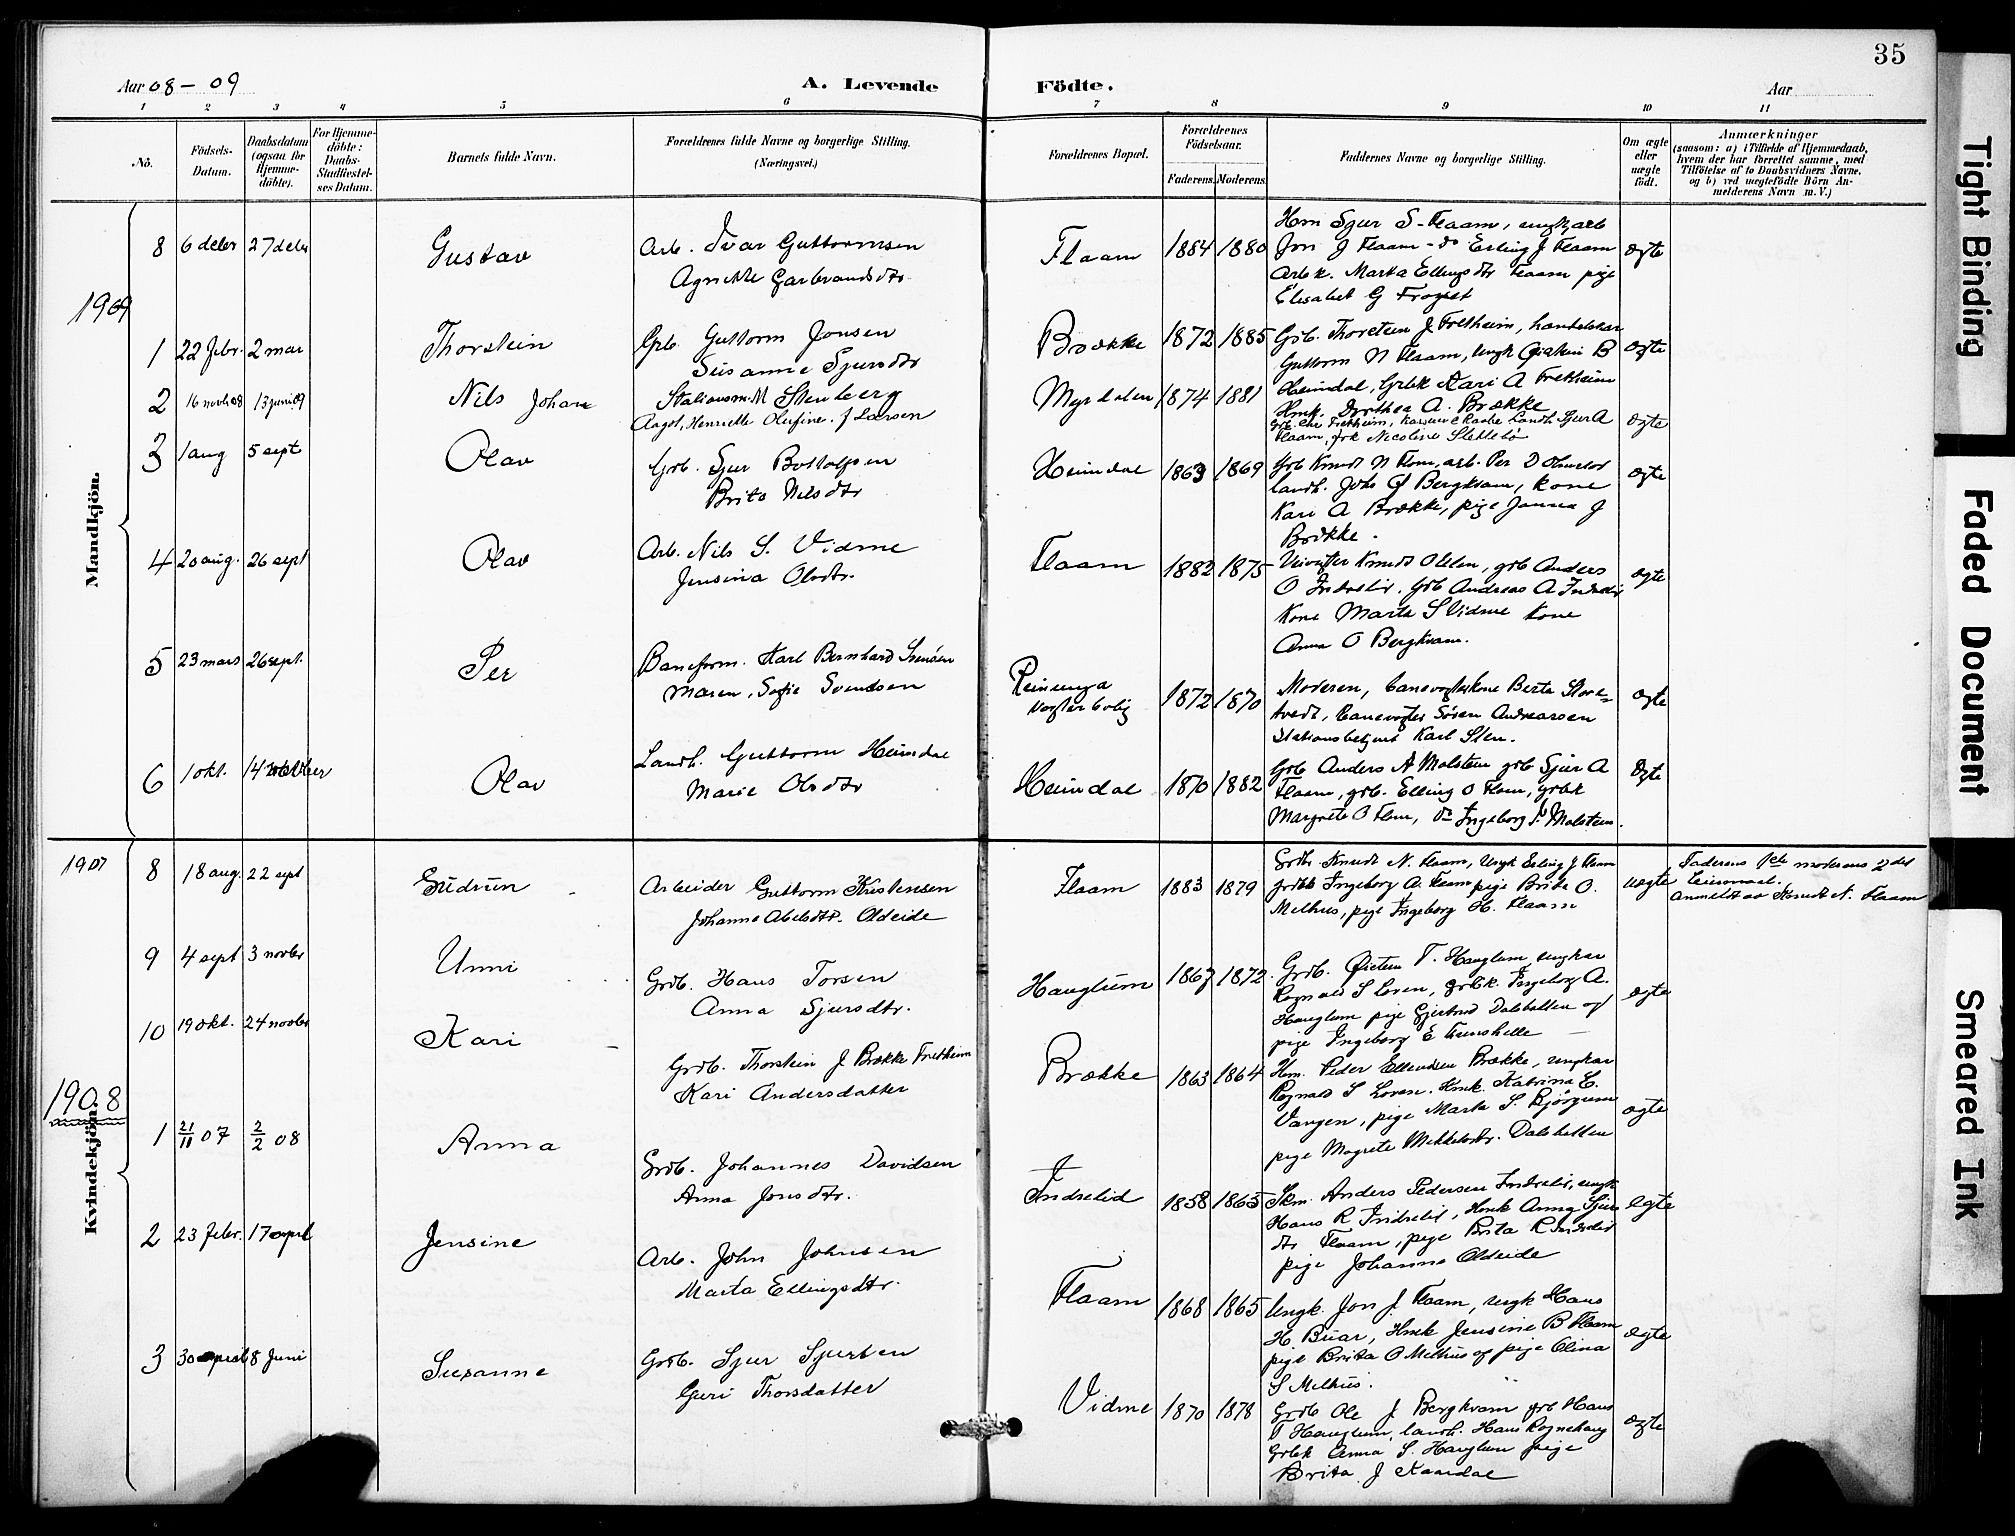 35
Aar 08 - 09
A. Levende
Födte.
Aar
1 2 3 4 5 6 7 8 9 10 11
No.
Födsels-Datum.
Daabsdatum (ogsaa for Hjemme-döbte).
For Hjemme-döbte: Daabs-Stadfæstel-ses Datum.
Barnets fulde Navn.
Forældrenes fulde Navne og borgerlige Stilling.
(Næringsvei.)
Forældrenes Bopæl.
Forældrenes Födselsaar.
Faderens. Moderens.
Faddernes Navne og borgerlige Stilling.
Om ægte eller uægte födt.
Anmærkninger
(saasom: a) i Tilfælde af Hjemmedaab, hvem der har forrettet samme, med Tilföielse af to Daabsvidners Navne, og b) ved uægtefödte Börn An-melderens Navn m. V.)
Mandkjön.
8 6 deber 27 deber Gustav
Arb. Ivar Guttormsen
Agnethe Garbrandsdtr.
Flaam 1884 1880
Hm Sjur S. Flaam, ungk arb
Jon J Flaam - do Erling J Flaam
Arbk. Marta Ellingsdtr Flaam pige
Elisabet G
ægte
1909
1 22 febr. 2 mar Thorstein
Gb. Guttorm Jonsen
Susanne Sjursdtr
Brække 1872 1885
Grb. Thorstein J Fretheim, handelskar
Guttorm N Flaam, ungk B
Heimdal, Grbk Kari A Fretheim
Hmk. Dorthea A. Brække
ægte
2 16 novb 08 13 juni 09 Nils Johan
Stationsm. M Stenberg
Aagot, Henriette Olufine. f Larsen
Myrdalen 1874 1881
Fretheim, Landh. Sjur A
Flaam, frk Nicoline
ægte
3 1 aug 5 sept Olav
Grb. Sjur Bottolfsen
Brita Nilsdtr
Heimdal 1863 1869
Grb Knudt N Flam, arb. Per D
landh. Johs Bergkvam, kone
Kari A Brække, pige Janna J
Brække.
ægte
4 20 aug. 26 sept Olav
Arb. Nils S. Vidme
Jensina Olsdtr.
Flaam 1882 1875
Knudt Olsen, grb Anders
O Indrelid. Grb Andreas A Indrelid
Kone Marta S Vidme kone
Anna O Bergkvam.
ægte
5 23 mars 26 sept. Per
Baneform. Karl Bernhard
Maren, Sofie Svendsen
Reinunga
vogterbolig
1872 1870
Moderen, banevogterkone Berta
banevogter Sören Andreassen
Stationsbetjent Karl Sten.
ægte
6 1 okt. 14 oktber Olav
Landh. Guttorm Heimdal
Marie Olsdtr
Heimdal 1870 1882
Grb Anders A Molstein grb Sjur A
Flaam, grb. Elling O Flam, grbk
Margrete O Flam, do Ingeborg Molstein.
ægte
Kvindekjön.
1907
8 18 aug. 22 sept Gudrun
Arbeider Guttorm Kristensen
Johanne Abelsdtr. Oldeide
Flaam 1883 1879
Grdb. Knudt N. Flaam, Ungk Erling J Flaam
grdbk Ingeborg A. Flaam pige Brita O.
Melhus, pige Ingeborg H. Flaam
uægte
Faderens 1ste moderens 2det
Leiermaal.
Anmeldt av Knudt N. Flaam
9 4 sept 3 novbr Unni
Grdb. Hans Torsen
Anna Sjursdtr.
Hauglum 1867 1872
Grdb. Øistein T. Hauglum, ungkar
Rognald S Loven, grbk. Ingeborg A.
Hauglum pige Gjertrud Dalsbotten og
pige Ingeborg E
ægte
10 19 okt. 24 novbr Kari
Grdb. Thorstein J Brække Fretheim
Kari Andersdatter
Brække 1863 1864
Hm. Peder Ellendsen Brække, ungkar
Rognald S Loven. Hmk. Katrina E.
Vangen, pige Marta S. Bjørgum
pige Magrete Mikkelsdtr. Dalsbotten
ægte
1908
1 21/11 07 2/2 08 Anna
Grdb. Johannes Davidsen
Anna Jonsdtr.
Indrelid 1858 1865
Anders Pedersen Indrelid, ungk
Hans R Indrelid, Hmk Anna Sjurs
dtr Flaam, pige Brita R Indrelid
pige Johanna Oldeide
ægte
2 23 febr. 17 april Jensine
Arb. John Johnsen
Marta Ellingsdtr.
Flaam 1868 1865
Ungk. Jon J. Flaam, ungk Hans
H. Buar, Hmk Jensine B Flaam
pige Brita O Melhus og pige Olina
S Melhus.
ægte
3 30 april 8 Juni Susanne
Grdb. Sjur Sjursen
Guri Thorsdatter
Vidme 1870 1878
Grdb Ole J Bergkvam grb Hans
T Hauglum, landh. Hans Rognehaug
Grbk Anna S. Hauglum pige
Brita J Kaardal
ægte
Tight Binding
Faded Document
Smeared Ink